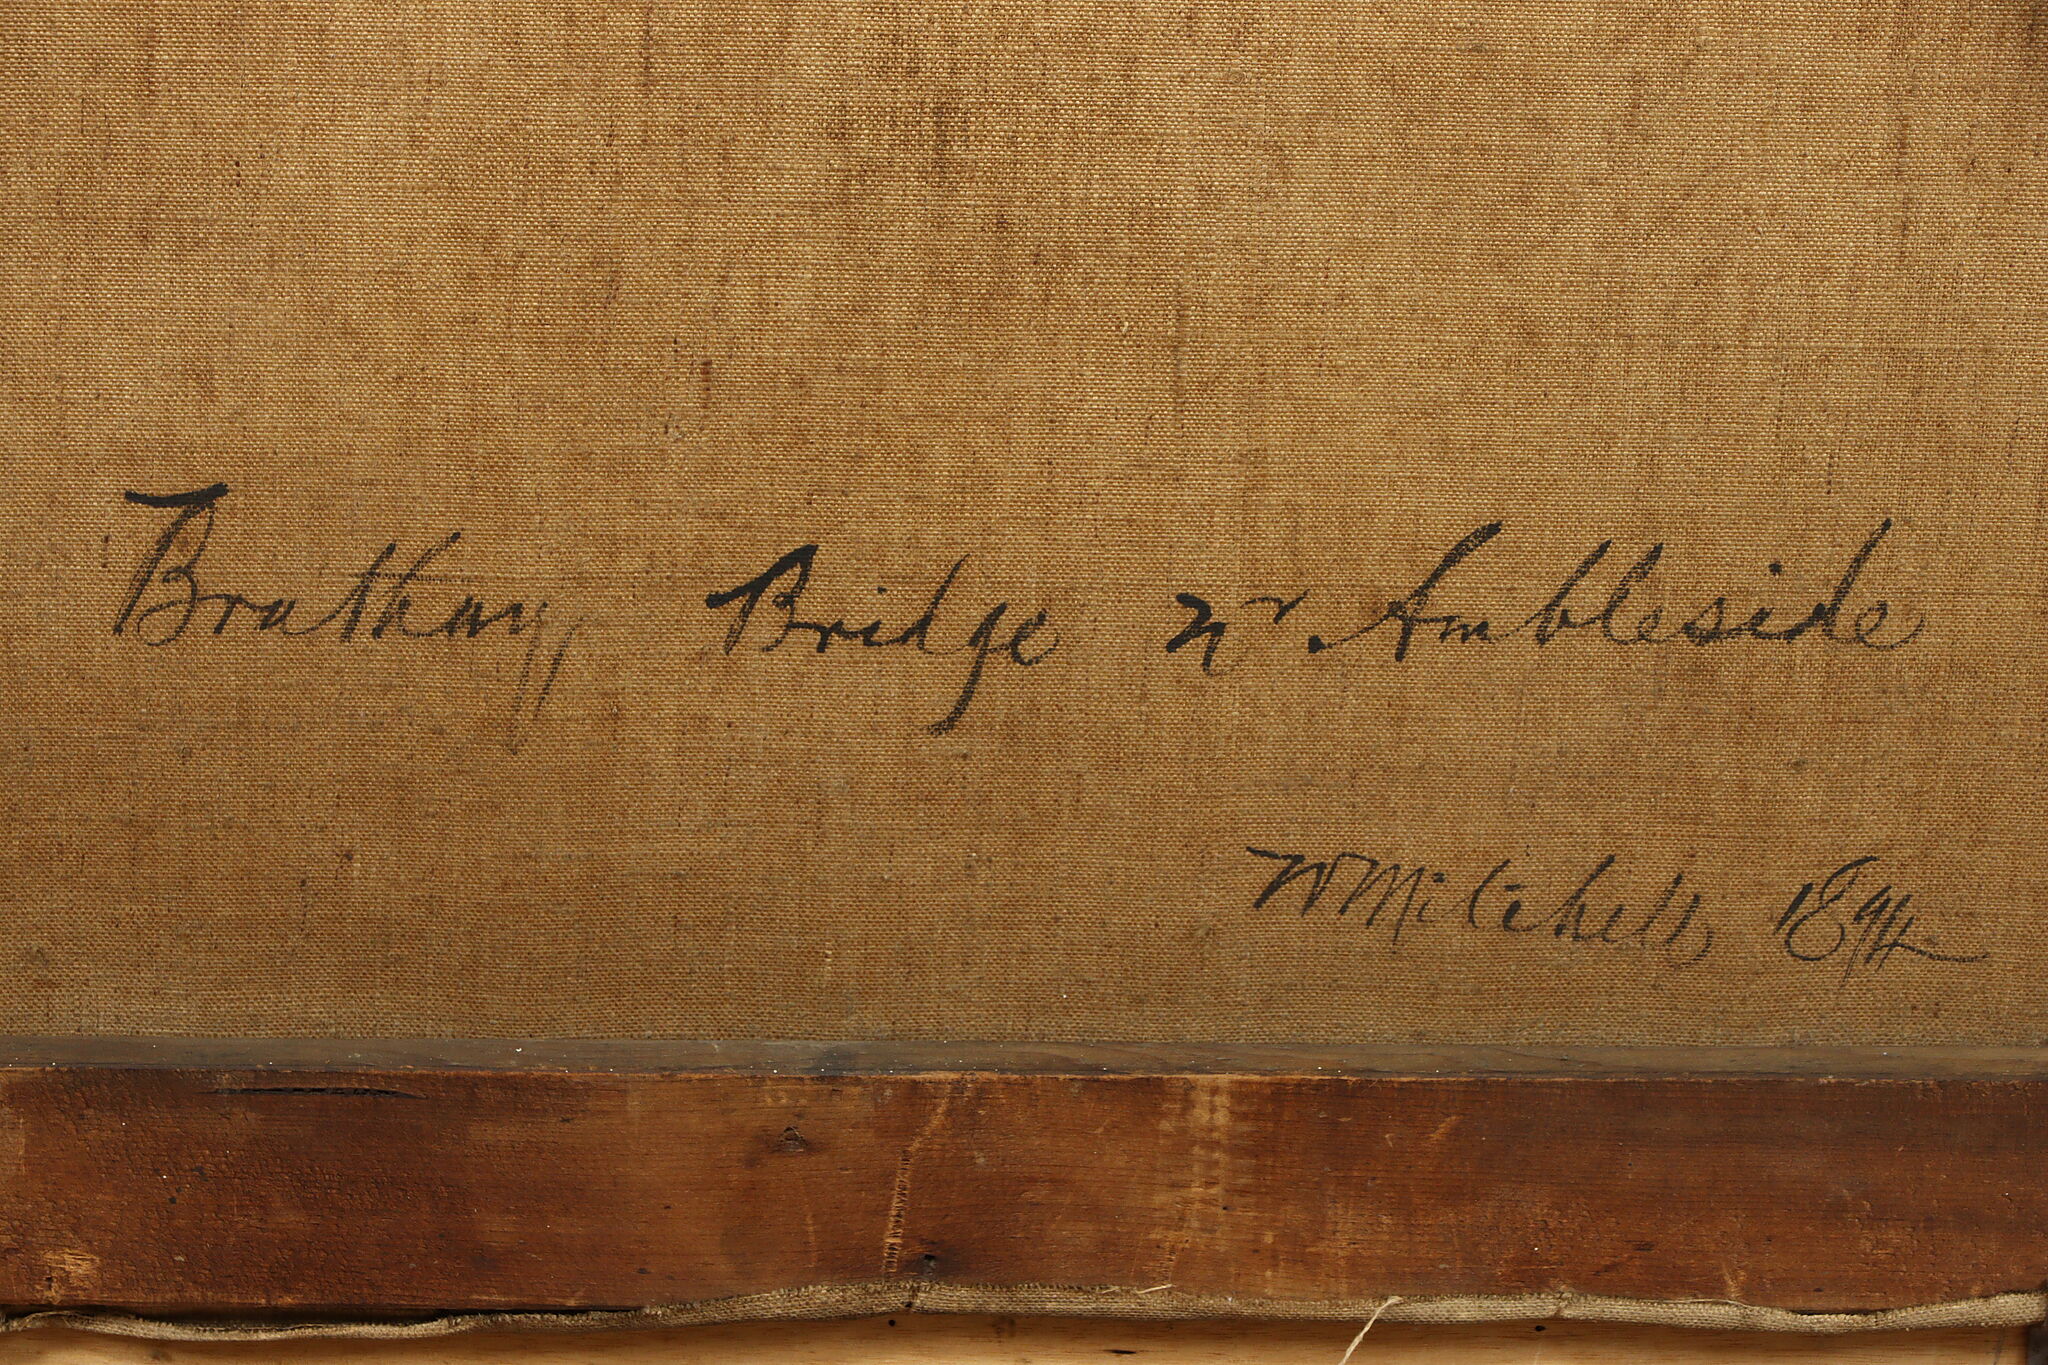 Brathay Bridge nr Ambleside
W Mitchell 1894